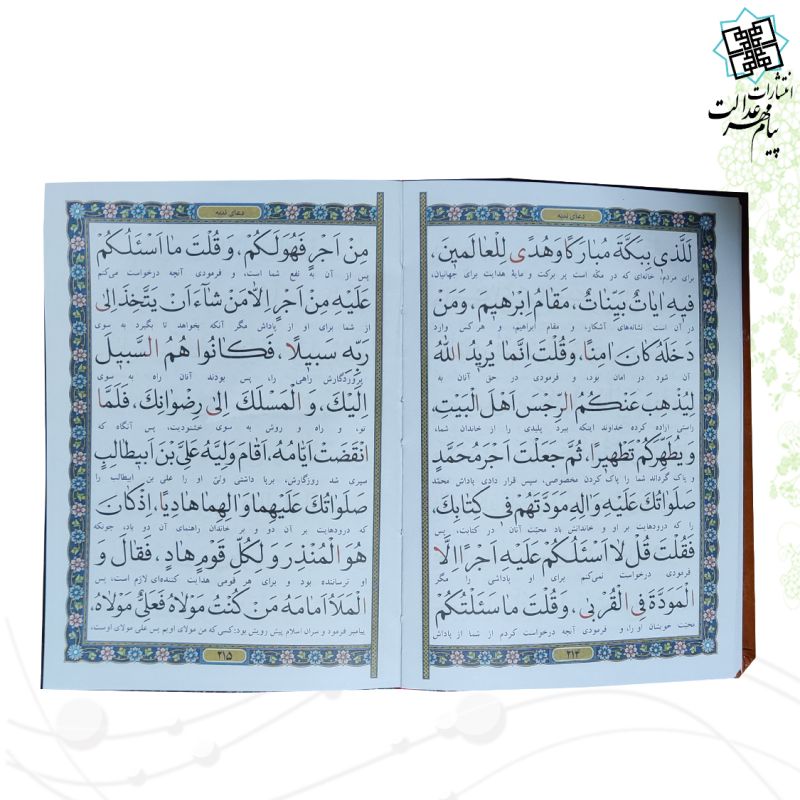 انتشارات
پیام مهر عدالت
دعای ندبه
لَلَّذی بِبَکَّةَ مُبارَکًا وَهُدًی لِلْعالَمینَ،
برای مردم؛ خانه‌ای که در مکّه است پر برکت و مایهٔ هدایت برای جهانیان،
فیهِ ایاتٌ بَیِّناتٌ، مَقامُ اِبْرهیمَ، وَمَنْ
در آن است نشانه‌های آشکار، و مقام ابراهیم، و هر کس وارد
دَخَلَهُ کانَ امِنًا، وَقُلْتَ اِنَّما یُریدُ اللهُ
آن شود در امان بود، و فرمودی در حق آنان به
لِیُذْهِبَ عَنْکُمُ الرِّجْسَ اَهْلَ الْبَیْتِ،
راستی اراده کرده خداوند اینکه ببرد پلیدی را از خاندان شما،
وَ یُطَهِّرَکُمْ تَطْهیرًا، ثُمَّ جَعَلْتَ اَجْرَ مُحَمَّدٍ
و پاک گرداند شما را پاک کردن مخصوصی، سپس قرار دادی پاداش محمّد
صَلَواتُکَ عَلَیْهِ وَ الِهِ مَوَدَّتَهُمْ فی کِتابِکَ،
را که درودهایت بر او و خاندانش باد محبّت آنان در کتابت، پس
فَقُلْتَ قُلْ لا اَسْئَلُکُمْ عَلَیْهِ اَجْرًا اِلَّا
فرمودی درخواست نمی‌کنم برای او پاداشی را مگر
الْمَوَدَّةَ فِی الْقُرْبی، وَ قُلْتَ ما سَئَلْتُکُمْ
محبّت خویشان او را، و فرمودی آنچه درخواست کردم از شما از پاداش
۲۱۴
دعای ندبه
مِنْ اَجْرٍ فَهُوَ لَکُمْ، وَ قُلْتَ ما اَسْئَلُکُمْ
پس از آن به نفع شما است، و فرمودی آنچه درخواست می‌کنم
عَلَیْهِ مِنْ اَجْرٍ اِلّا مَنْ شآءَ اَنْ یَتَّخِذَ اِلی
از شما برای او از پاداش مگر آنکه بخواهد تا بگیرد به سوی
رَبِّهِ سَبیلًا، فَکانُوا هُمُ السَّبیلَ
پروردگارش راهی را، پس بودند آنان راه به سوی
اِلَیْکَ، وَ الْمَسْلَکَ اِلی رِضْوانِکَ، فَلَمَّا
تو، و راه و روش به سوی خشنودیت، پس آنگاه که
انْقَضَتْ اَیّامُهُ، اَقامَ وَلِیَّهُ عَلِیَّ بْنَ اَبیطالِبٍ
سپری شد روزگارش، برپا داشتی ولیّ او را علی بن ابیطالب را
صَلَواتُکَ عَلَیْهِما وَ الِهِما هادِیًا، اِذْ کانَ
که درودهایت بر آن دو و بر خاندان راهنمای آن دو باد، چونکه
هُوَ الْمُنْذِرَ وَ لِکُلِّ قَوْمٍ هادٍ، فَقالَ وَ
او ترساننده بود و برای هر قومی هدایت کننده‌ای لازم است، پس
الْمَلَأُ اَمامَهُ مَنْ کُنْتُ مَوْلاهُ فَعَلِیٌّ مَوْلاهُ،
پیامبر فرمود و سران اسلام پیش رویش بود: کسی که من مولای اویم پس علی مولای اوست،
۲۱۵